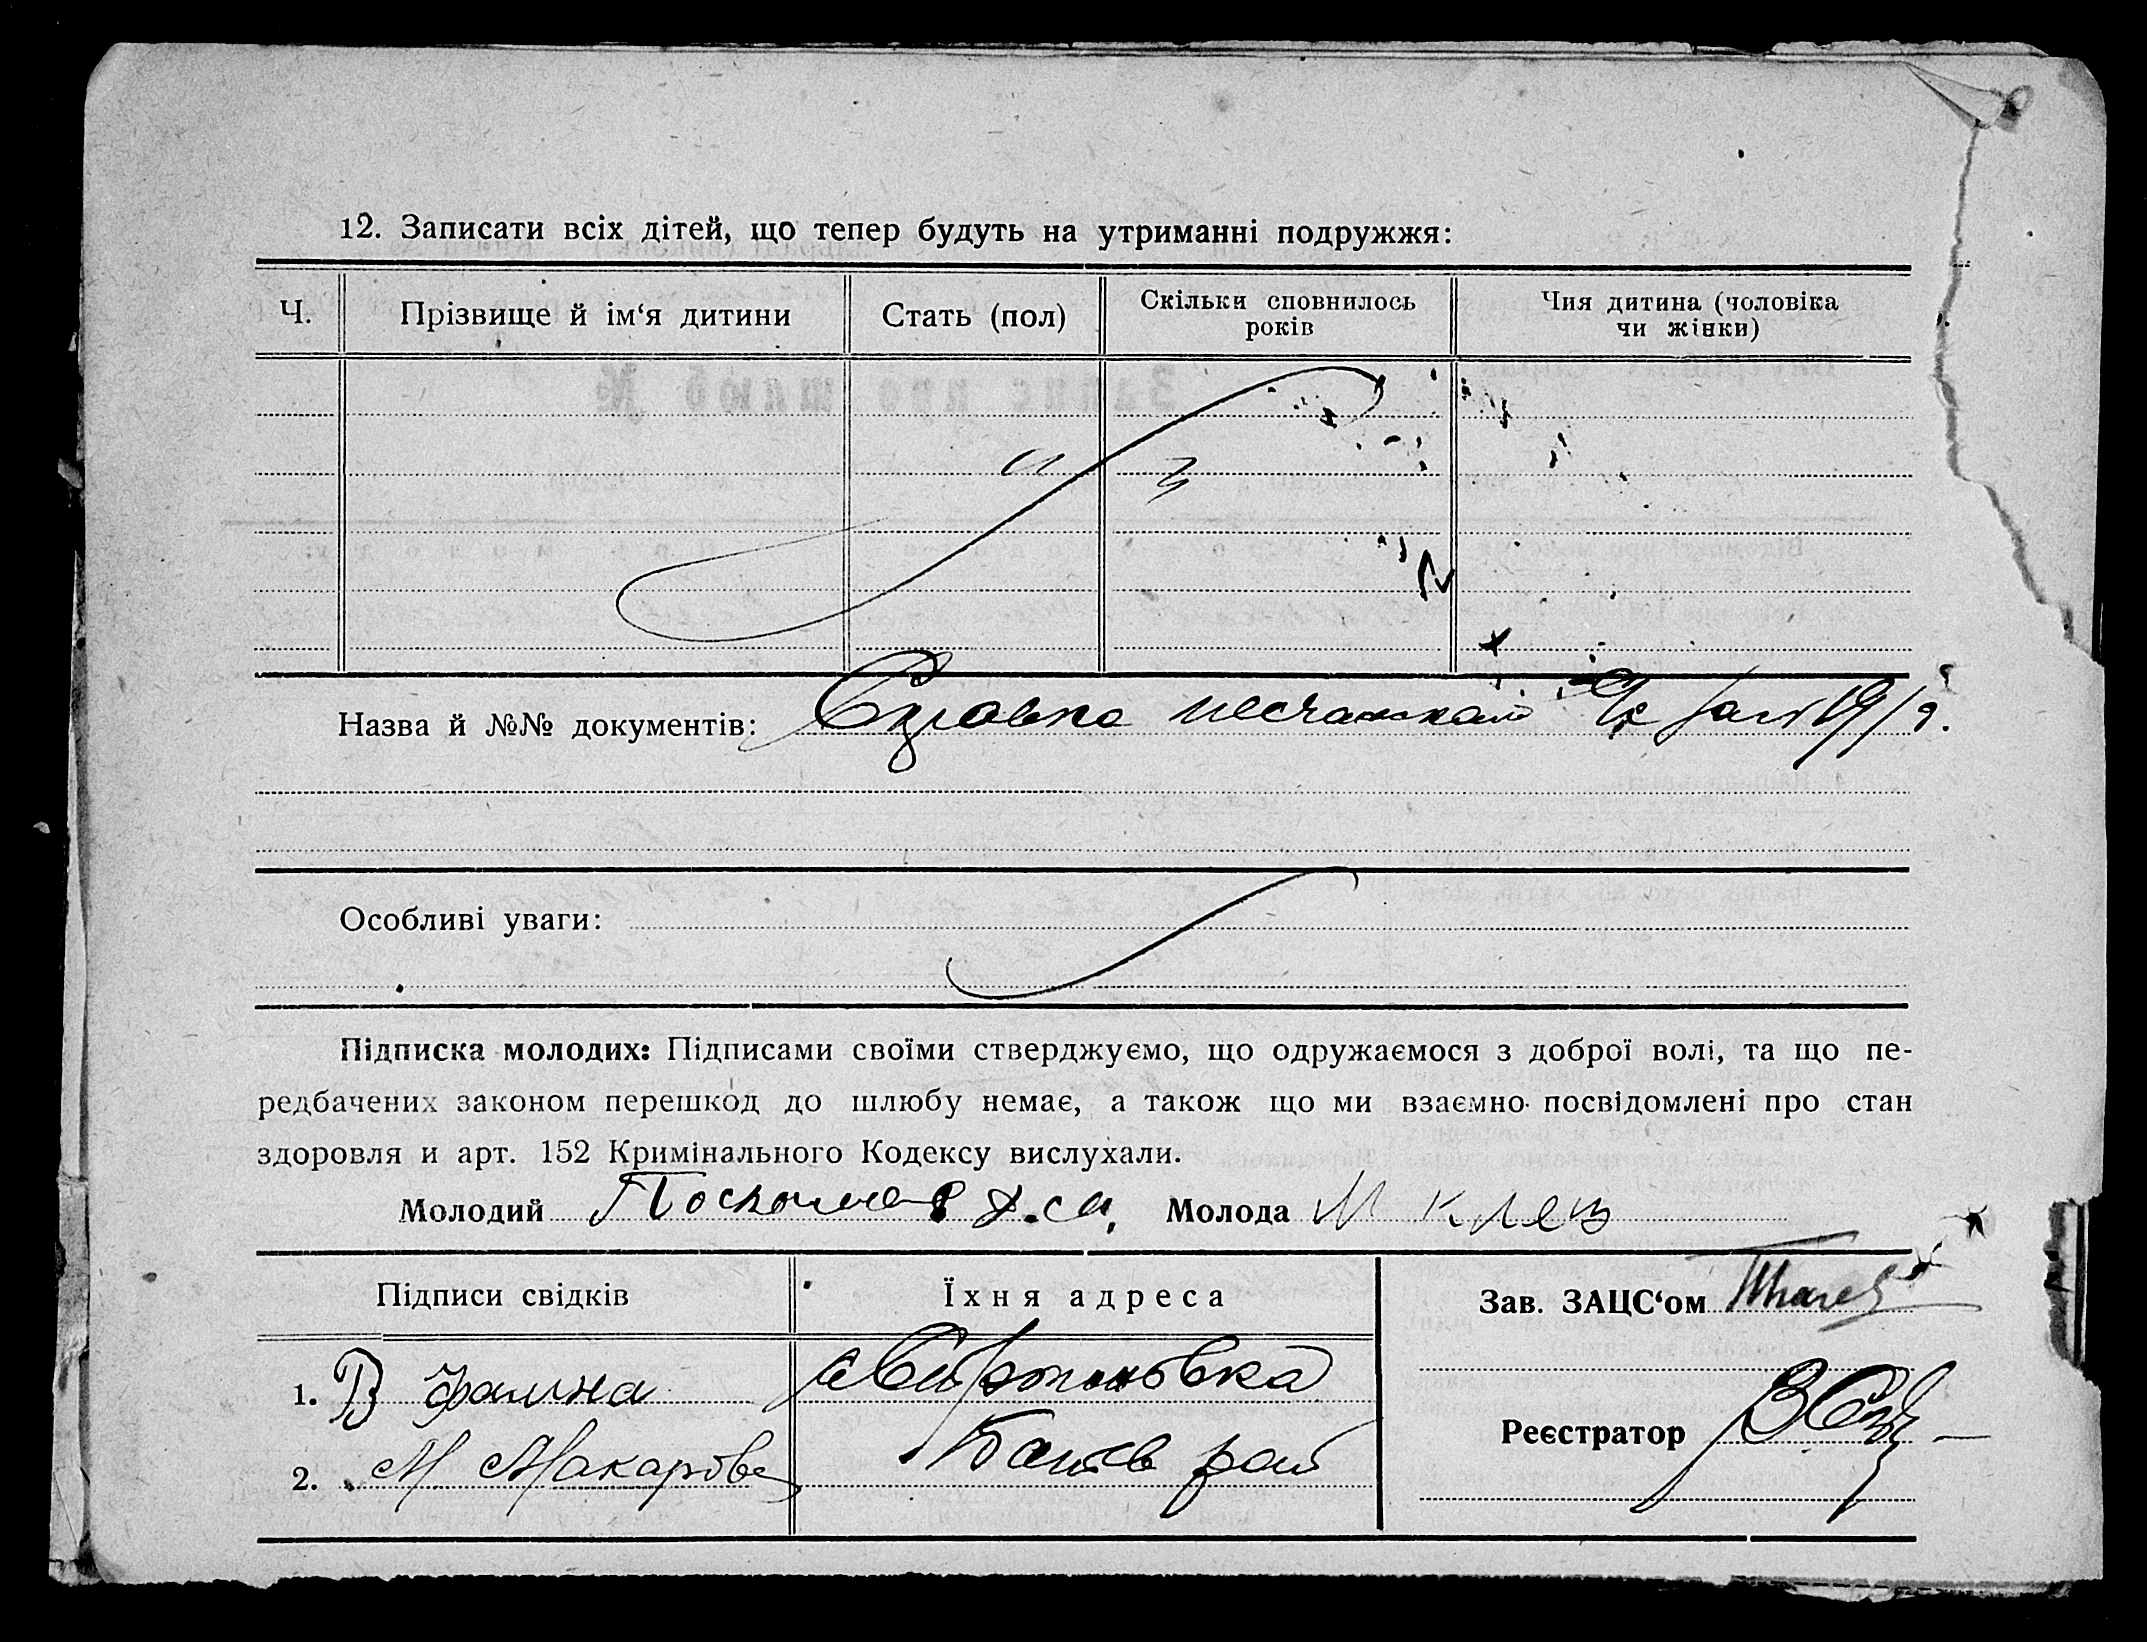 12. Записати всіх дітей, що тепер будуть на утриманні подружжя:
Ч.
Прізвище й ім‘я дитини
Стать (пол)
Скільки сповнилось
років
Чия дитина (чоловіка
чи жінки)
Назва й №№ документів: Справка
Особливі уваги:
Підписка молодих: Підписами своїми стверджуємо, що одружаємося з доброї волі, та що пе-
редбачених законом перешкод до шлюбу немає, а також що ми взаємно посвідомлені про стан
здоровля и арт. 152 Кримінального Кодексу вислухали.
Молодий Молода М Клец
Підписи свідків
Їхня адреса
Зав. ЗАЦС‘ом
1. В
2. М Макарова
рай
Реєстратор